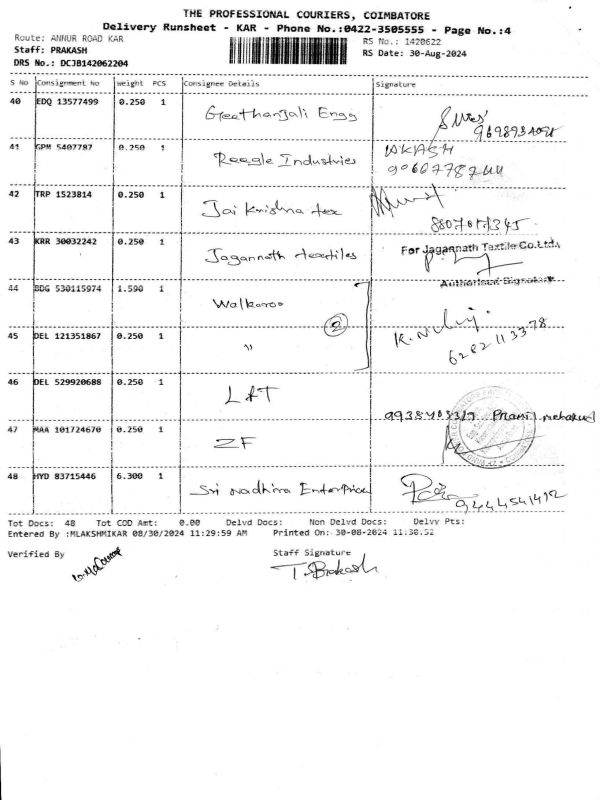 THE PROFESSIONAL COURIERS, COIMBATORE
Delivery Runsheet - KAR - Phone No.:0422-3505555 - Page No.:4
Route: ANNUR ROAD KAR
RS No.: 1420622
Staff: PRAKASH
RS Date: 30-Aug-2024
DRS No.: DCJB142062204
S No Consignment No Weight PCS Consignee Details Signature
40 EDQ 13577499 0.250 1 Geethanjali Engg
41 GPM 5407787 0.250 1 Reegle Industries AKASH
42 TRP 1523814 0.250 1 Jai Krishna tex
43 KRR 30032242 0.250 1 Jagannath textiles For Jagannath Textile Co.Ltd.,
Authorised Signatory
44 BDG 530115974 1.590 1 Walkaroo
2
45 DEL 121351867 0.250 1 "
6282113378
46 DEL 529920688 0.250 1 L&T
47 MAA 101724670 0.250 1 ZF
48 HYD 83715446 6.300 1 Sri Nadhira Enterprice
9444541492
Tot Docs: 48 Tot COD Amt: 0.00 Delvd Docs: Non Delvd Docs: Delvy Pts:
Entered By :MLAKSHMIKAR 08/30/2024 11:29:59 AM Printed On: 30-08-2024 11:30:52
Verified By Staff Signature
T. Prakash